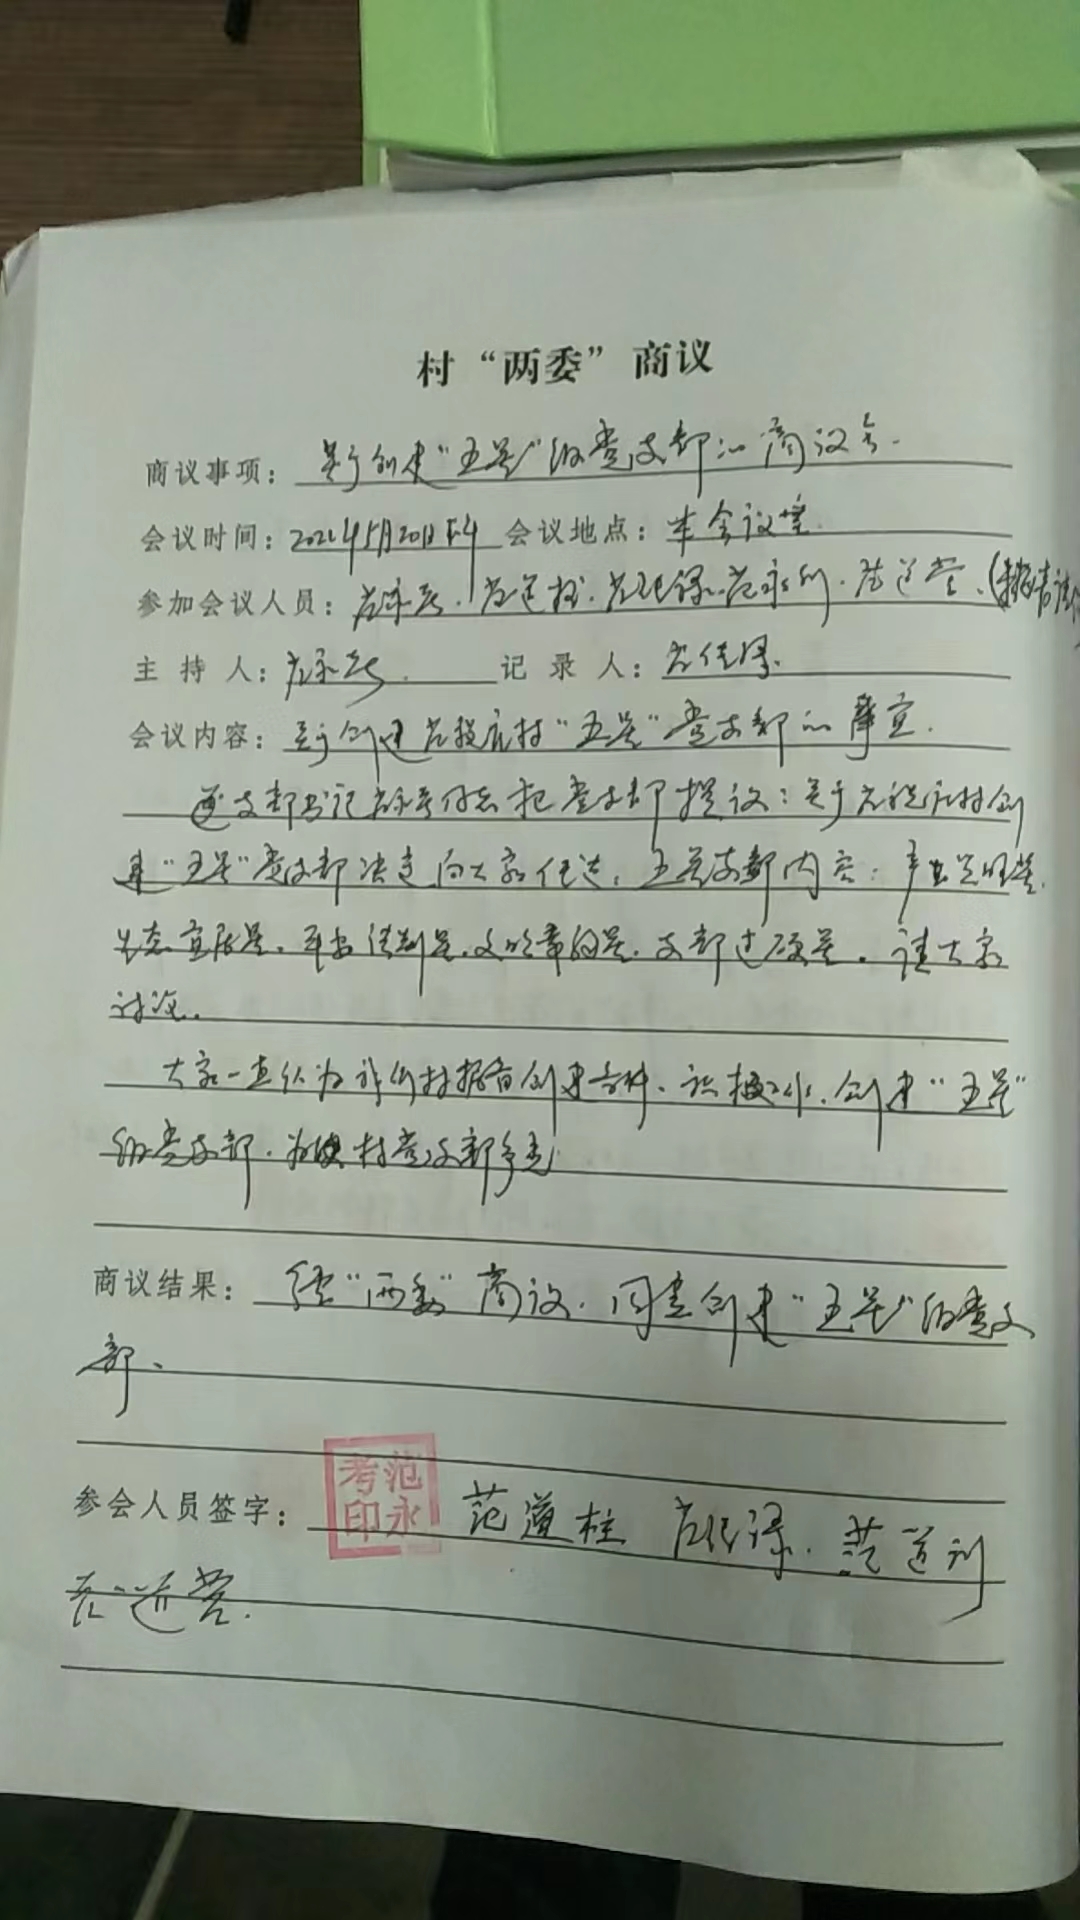 村“两委”商议
商议事项：关于创建“五星”级党支部的商议会.
会议时间：2022年5月20日下午 会议地点：本会议室.
参加会议人员：范永考.范道柱.范任录.范永利.范道营.
主持人：范永考. 记录人：
会议内容：关于创建范段庄村“五星”党支部的事宜.
支部书记范永考同志把党支部提议：关于范段庄村创
建“五星”党支部决定向大家传达，五星支部内容：产业兴旺星.
生态宜居星.平安法制星.文明幸福星.支部过硬星.请大家
讨论.
大家一直认为我们村据有创建条件、创建“五星”
级党支部.为使村党支部争先
商议结果：经“两委”商议.同意创建“五星”级党支
部.
参会人员签字：范永考印 范道柱 范任录.范道利
范道营.